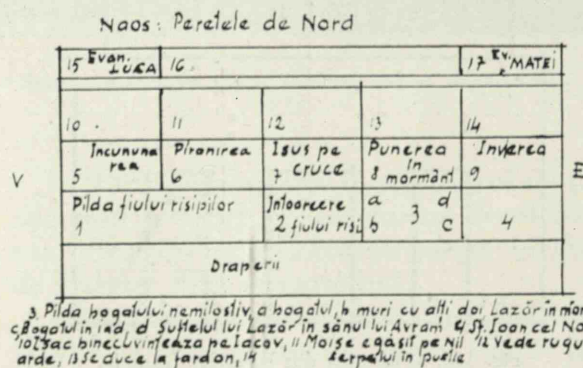 Naos: Peretele de Nord
15 Evan. LUCA 16 17 Ev. MATEI
10 11 12 13 14
Incununa rea Pironirea Isus pe Punerea Invierea
5 6 7 cruce 8 în mormânt 9
V E
Pilda fiului risipilor Intoarcere a d
1 2 fiului risi b 3 c 4
Draperii
3. Pilda bogatului nemilostiv, a bogatul, b muri cu alti doi Lazăr în
c, Bogatul in iad, d Sufletul lui Lazăr în sânul lui Avram 4 Sf. Ioan cel
10 Isac binecuvinteaza pe Iacov, 11 Moise e găsit pe Nil 12 Vede
arde, 13 Se duce la fardon, 14 serpetul in pustie